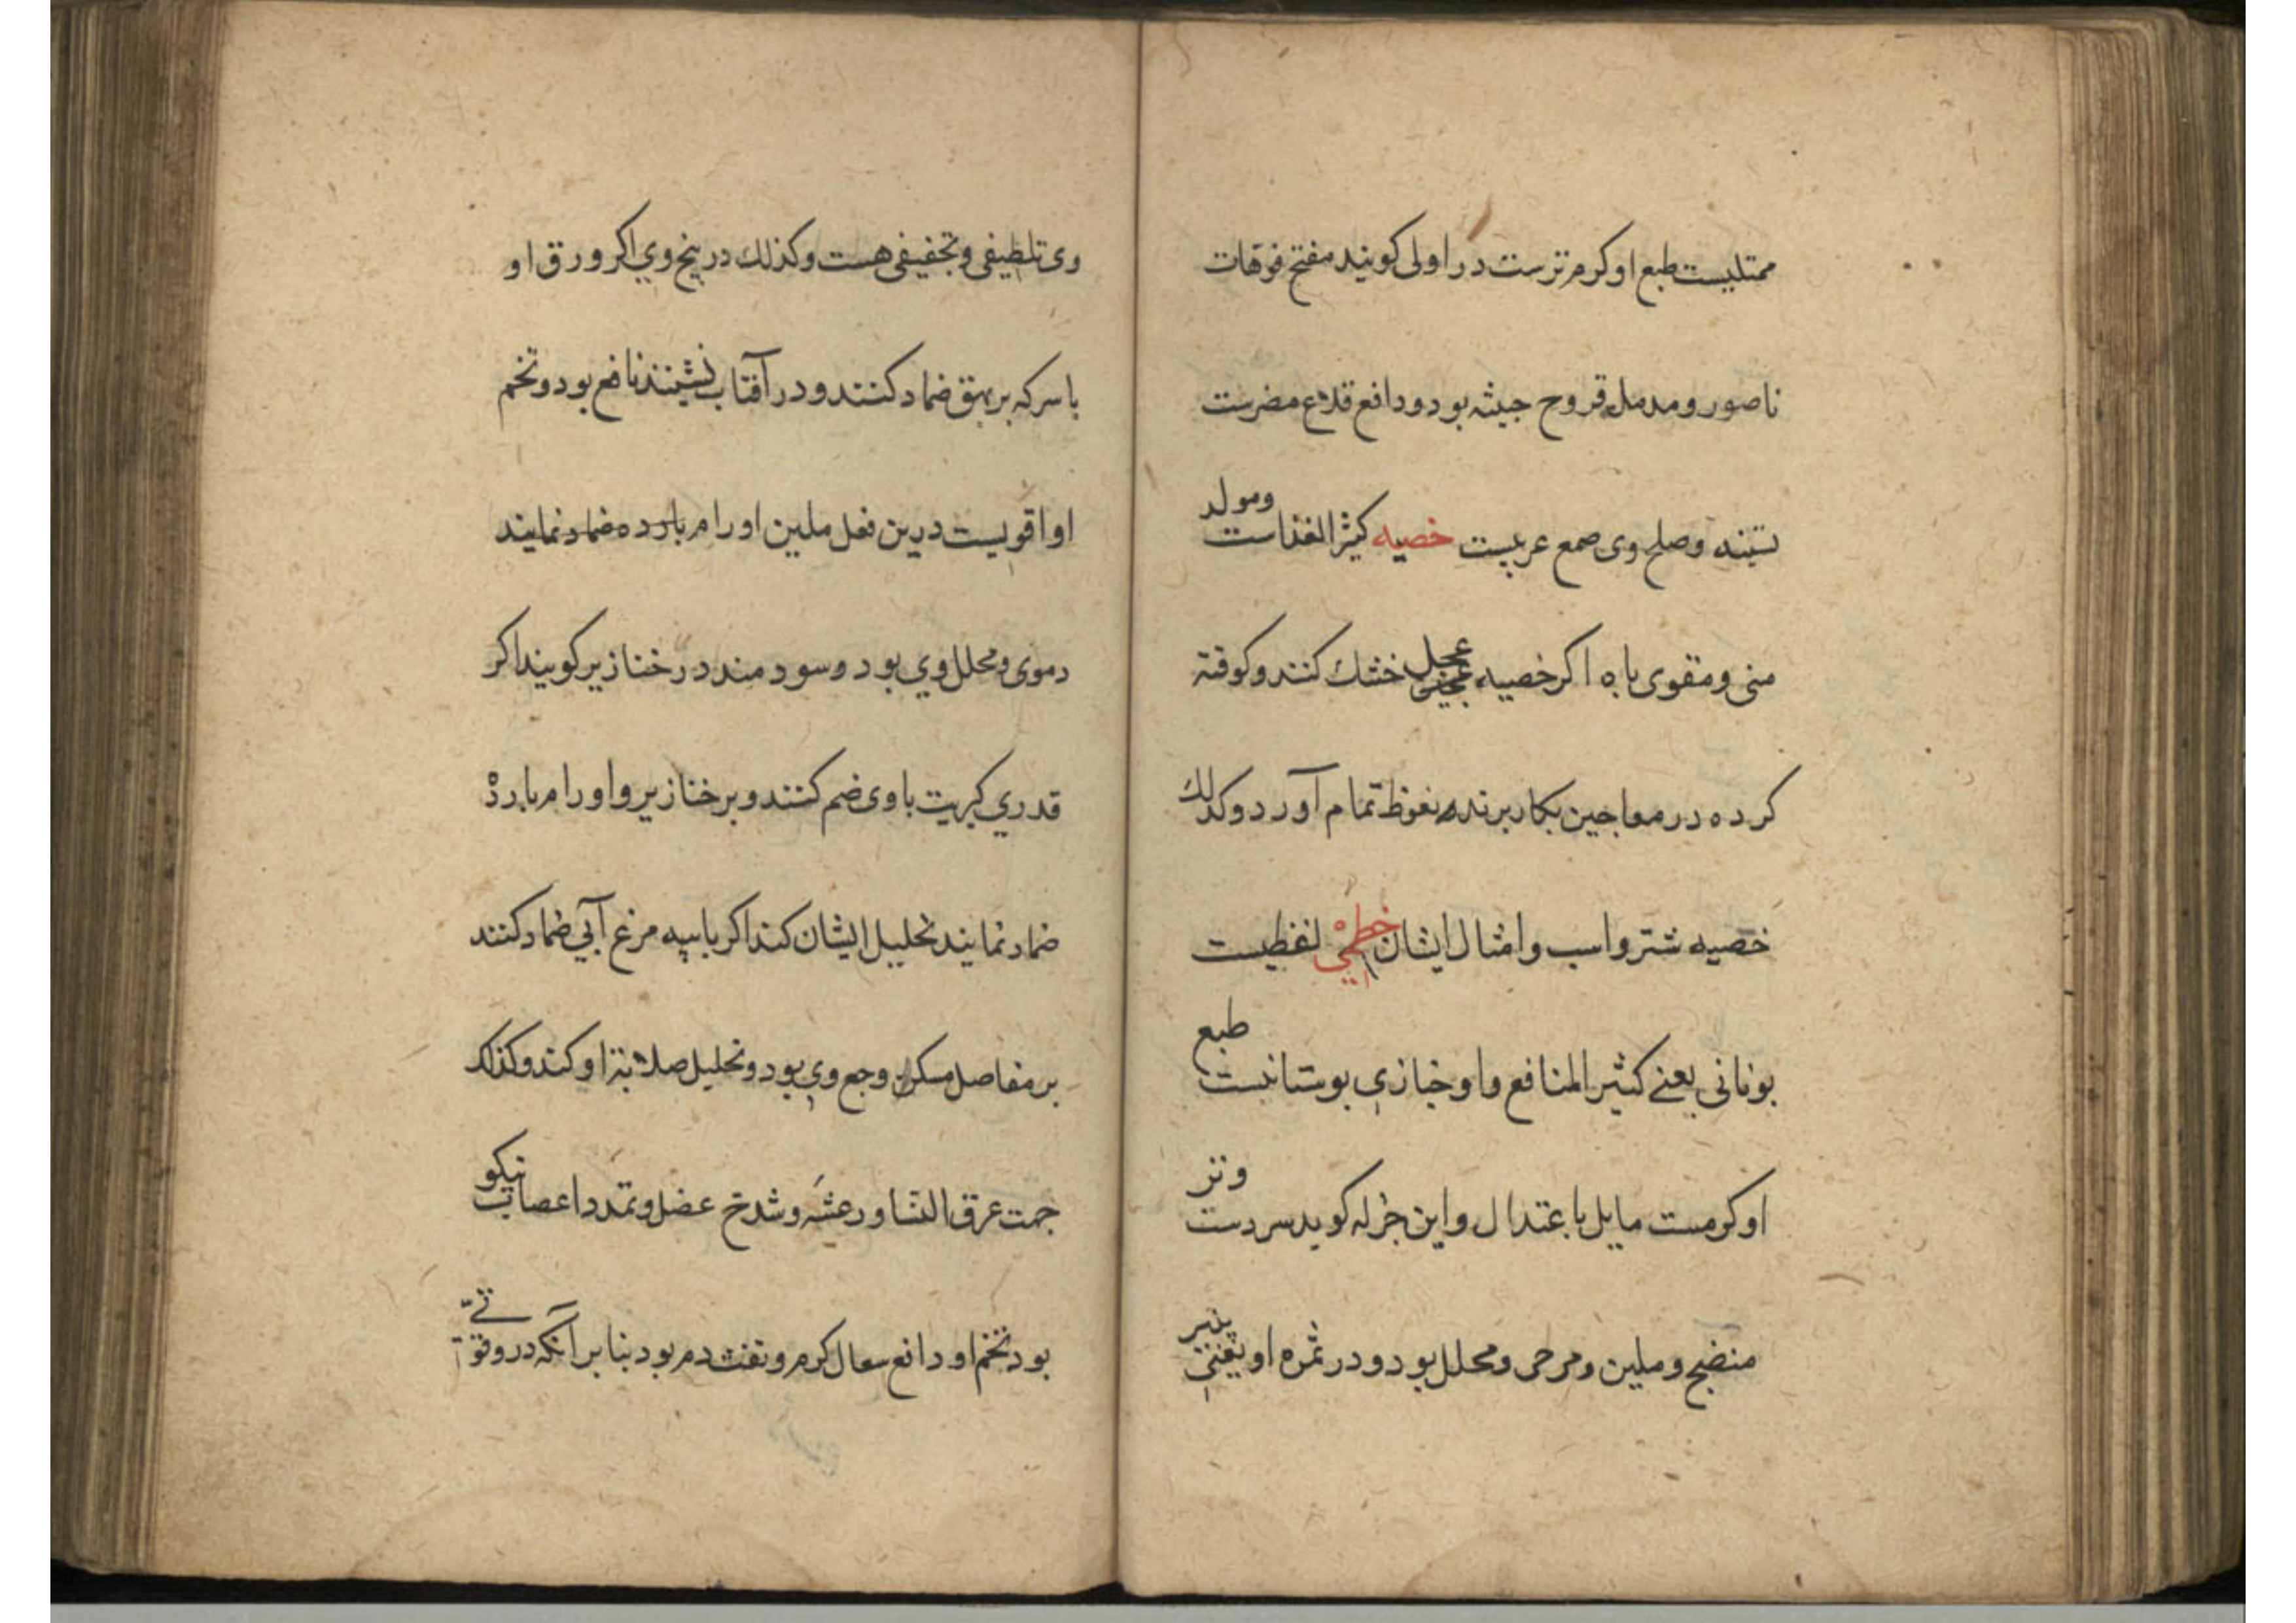 ممتلیست طبع او کرم ترست در اولی کویند مفتح فوهات
ناصور و مدمل قروح خبیثه بود و دافع قلاع مضرست
بسینه و مصلح وی صمغ عربیست خصیه کثیر الغذاست ومولد
منی و مقوی باه اکر خصیه عجل خشك کنند و کوفته
کرده در معاجین بکار برند نعوظ تمام آورد وکذلك
خصیه شتر و اسب و امثال ایشان خطمی لفظیست
یونانی یعنے کثیر المنافع واو خبازی بوستانیست طبع
او کرمست مایل باعتدال و ابن جزله کوید سردست وتر
منضج و ملین و مرخی و محلل بود و در ثمره او یعنی پنیر
وی تلطیفی و تجفیفی هست وکذلك در بیخ وی اکر ورق او
با سرکه بر بهق ضماد کنند و در آفتاب نشینند نافع بود و تخم
او اقویست درین فعل ملین اورام بارده ضماد نمایند
دموی و محلل وی بود و سودمند در خنازیر کویند اکر
قدری کبریت با وی ضم کنند و بر خنازیر و اورام بارده
ضماد نمایند تحلیل ایشان کند اکر با پیه مرغ آبی ضماد کنند
بر مفاصل مسکن وجع وی بود و تحلیل صلابة او کند وکذلك
جهت عرق النسا و رعشه و شدخ عضل و تمدد اعصاب نیکو
بود تخم او دافع سعال کرم و نفث دم بود بنابر آنکه درو قوة